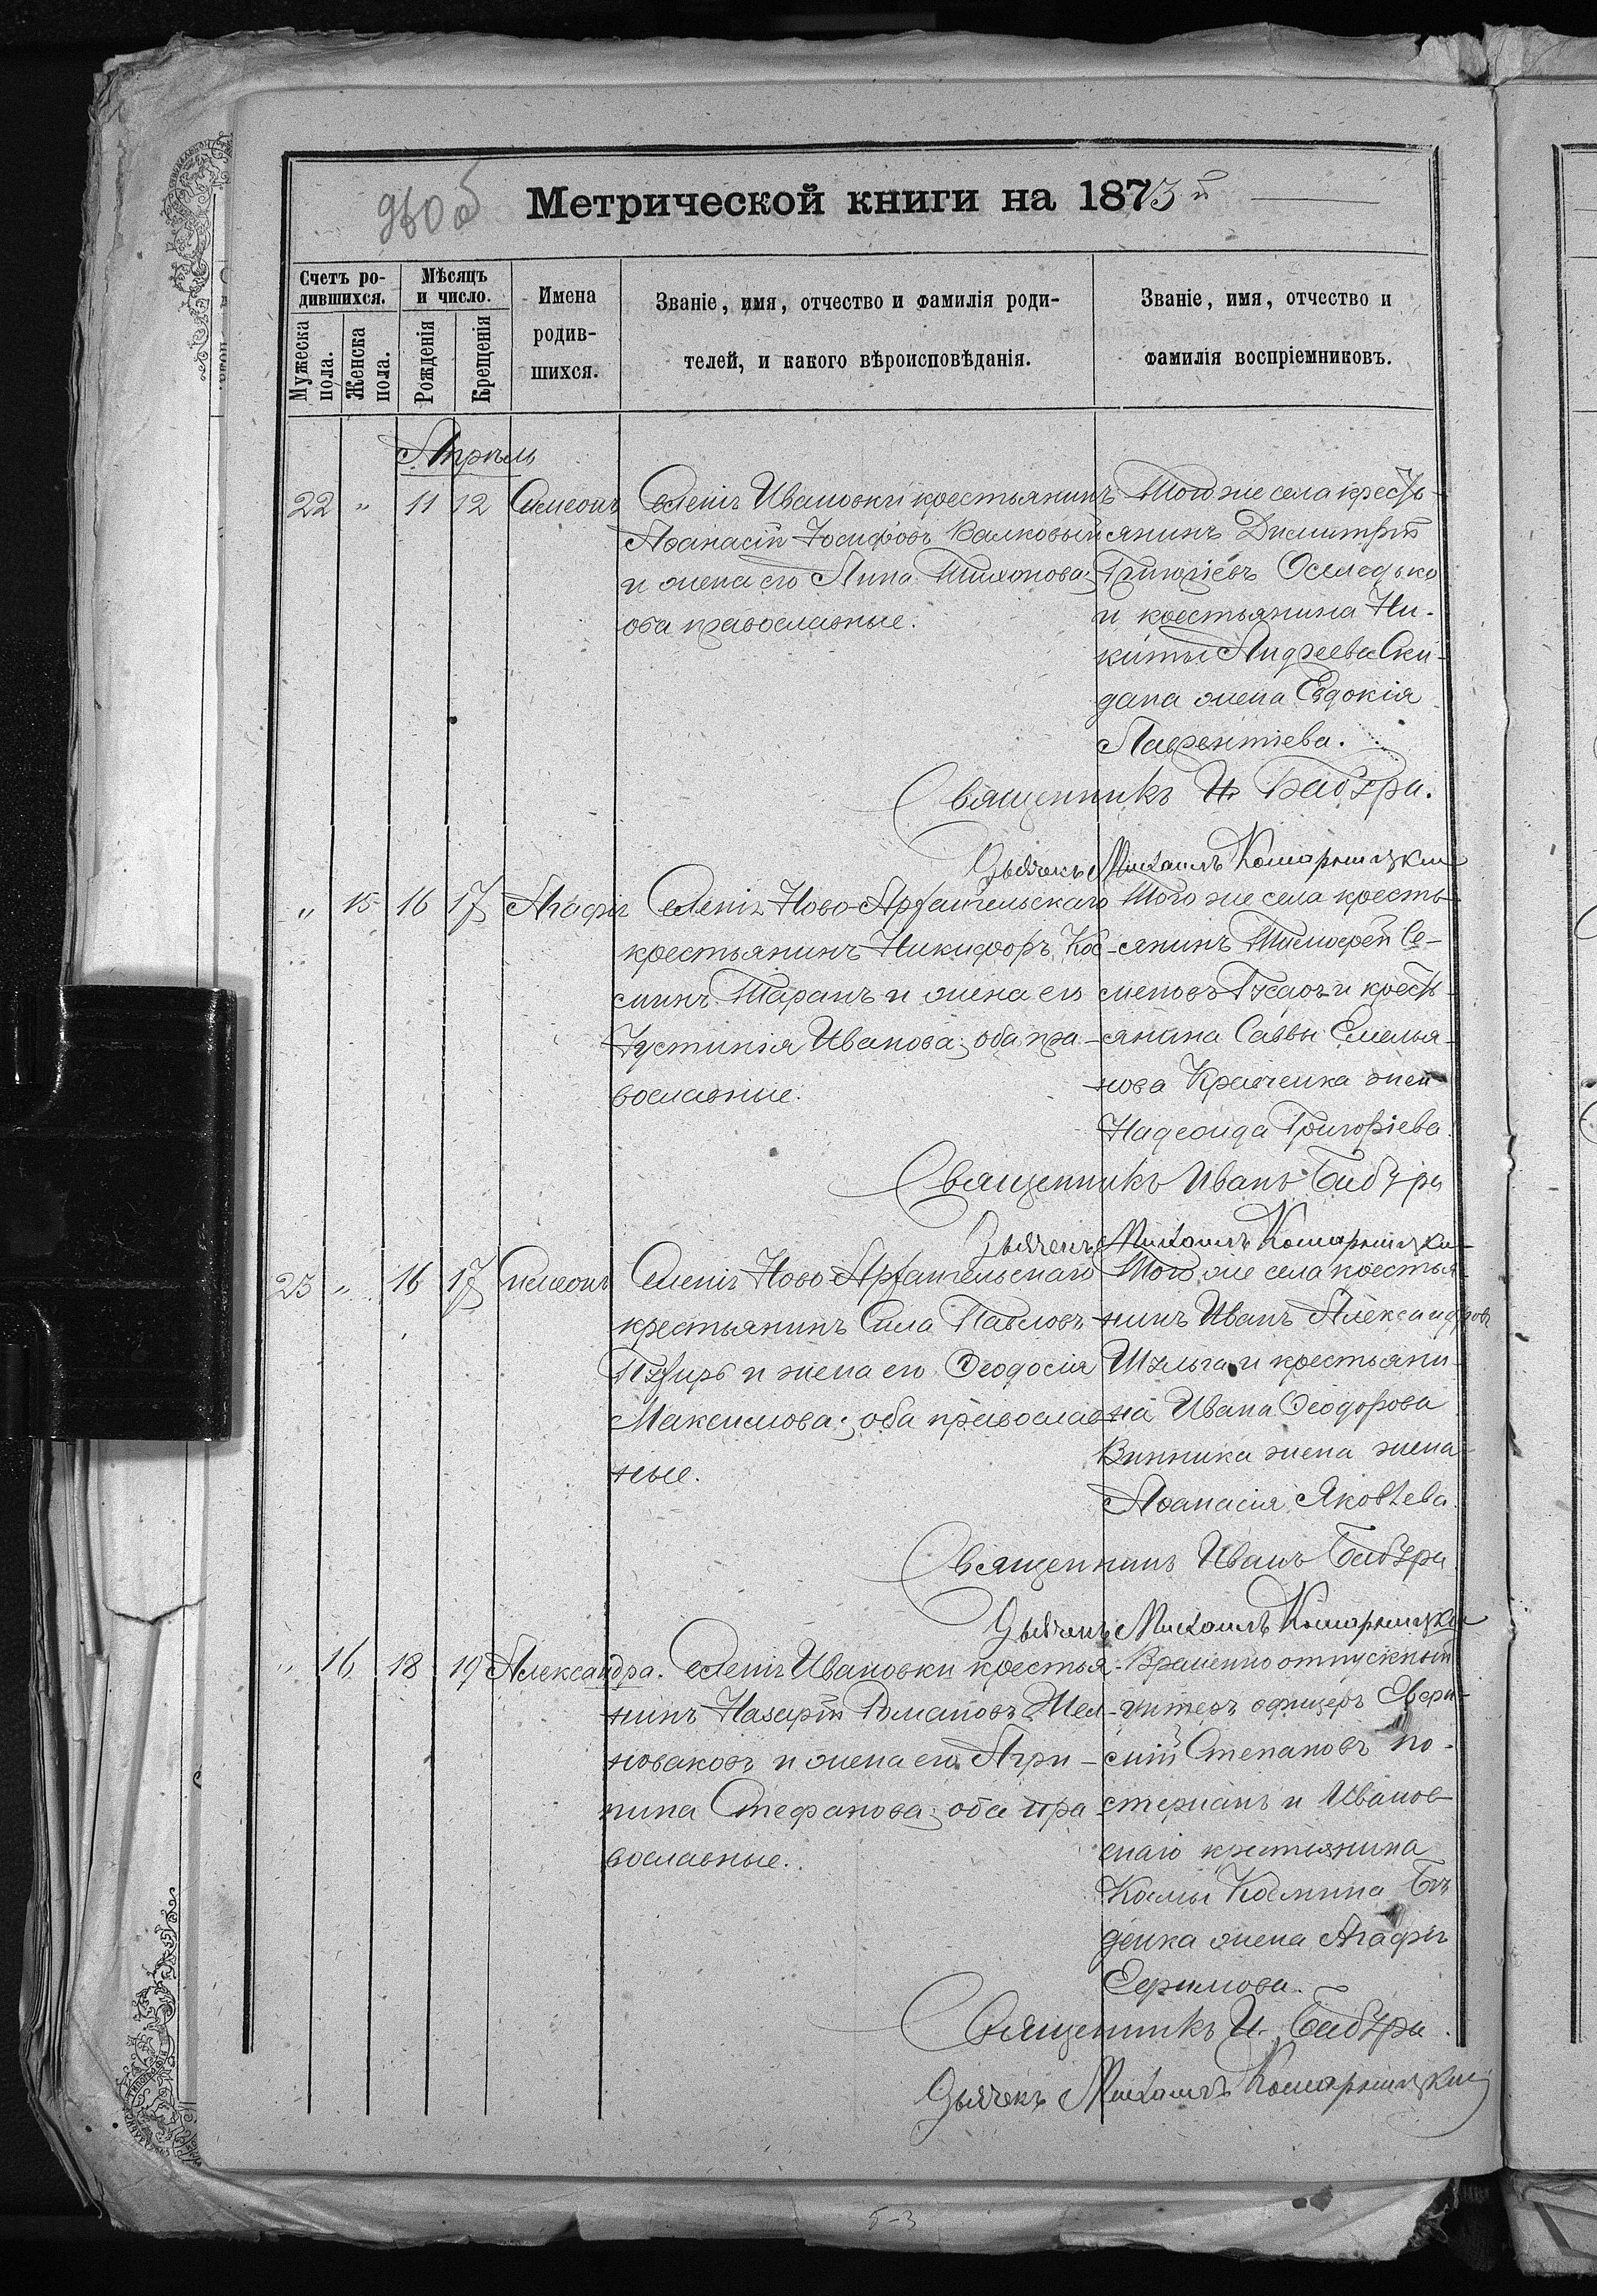 Метрической книги на 1873й
Счетъ родившихся.
Мѣсяцъ и число.
Имена родившихся.
Званіе, имя, отчество и фамилія родителей, и какого вѣроисповѣданія.
Званіе, имя, отчество и фамилія воспріемниковъ.
Мужеска пола.
Женска пола.
Рожденія
Крещенія
Апрѣль
22 " 11 12 Симеонъ Селенія Ивановки крестьянинъ
Аѳанасій Іосифовъ Валковый
и жена его Анна Тихонова;
оба православные.
Того же села кресть-
янинъ Димитрій
Григоріевъ Оселедько
и крестьянина Ни-
киты Андреева Ски-
дана жена Евдокія
Лаврентіева.
Священникъ И. Бабура.
Дьячекъ Михаилъ Комарницкій
" 15 16 17 Агафія Селенія Ново-Архангельскаго
крестьянинъ Никифоръ Кос-
минъ Таранъ и жена его
Іустинія Иванова; оба пра-
вославные.
Того же села кресть-
янинъ Тимофей Се-
меновъ и кресть-
янина Саввы Емелья-
нова Кравченка жена
Надежда Григоріева.
Священникъ Иванъ Бабура
Дьячекъ Михаилъ Комарницкій
23 " 16 17 Симеонъ Селенія Ново-Архангельскаго
крестьянинъ Сила Павловъ
Пузырь и жена его Ѳеодосія
Максимова; оба православ-
ные.
Того же села крестья-
нинъ Иванъ Александровъ
Шульга и крестьяни-
на Ивана Ѳеодорова
Винника жена жена
Аѳанасія Яковлева.
Священникъ Иванъ Бабура
Дьячекъ Михаилъ Комарницкій
" 16 18 19 Александра. Селенія Ивановки крестья-
нинъ Назарій Романовъ Шел-
новаковъ и жена его Агри-
пина Стефанова; оба пра-
вославные.
Временно отпускный
унтеръ офицеръ
Степановъ
и Иванов-
скаго крестьянина
Косьмы Космина
жена Агафія
Ефимова.
Священникъ И. Бабура.
Дьячекъ Михаилъ Комарницкій
5-3